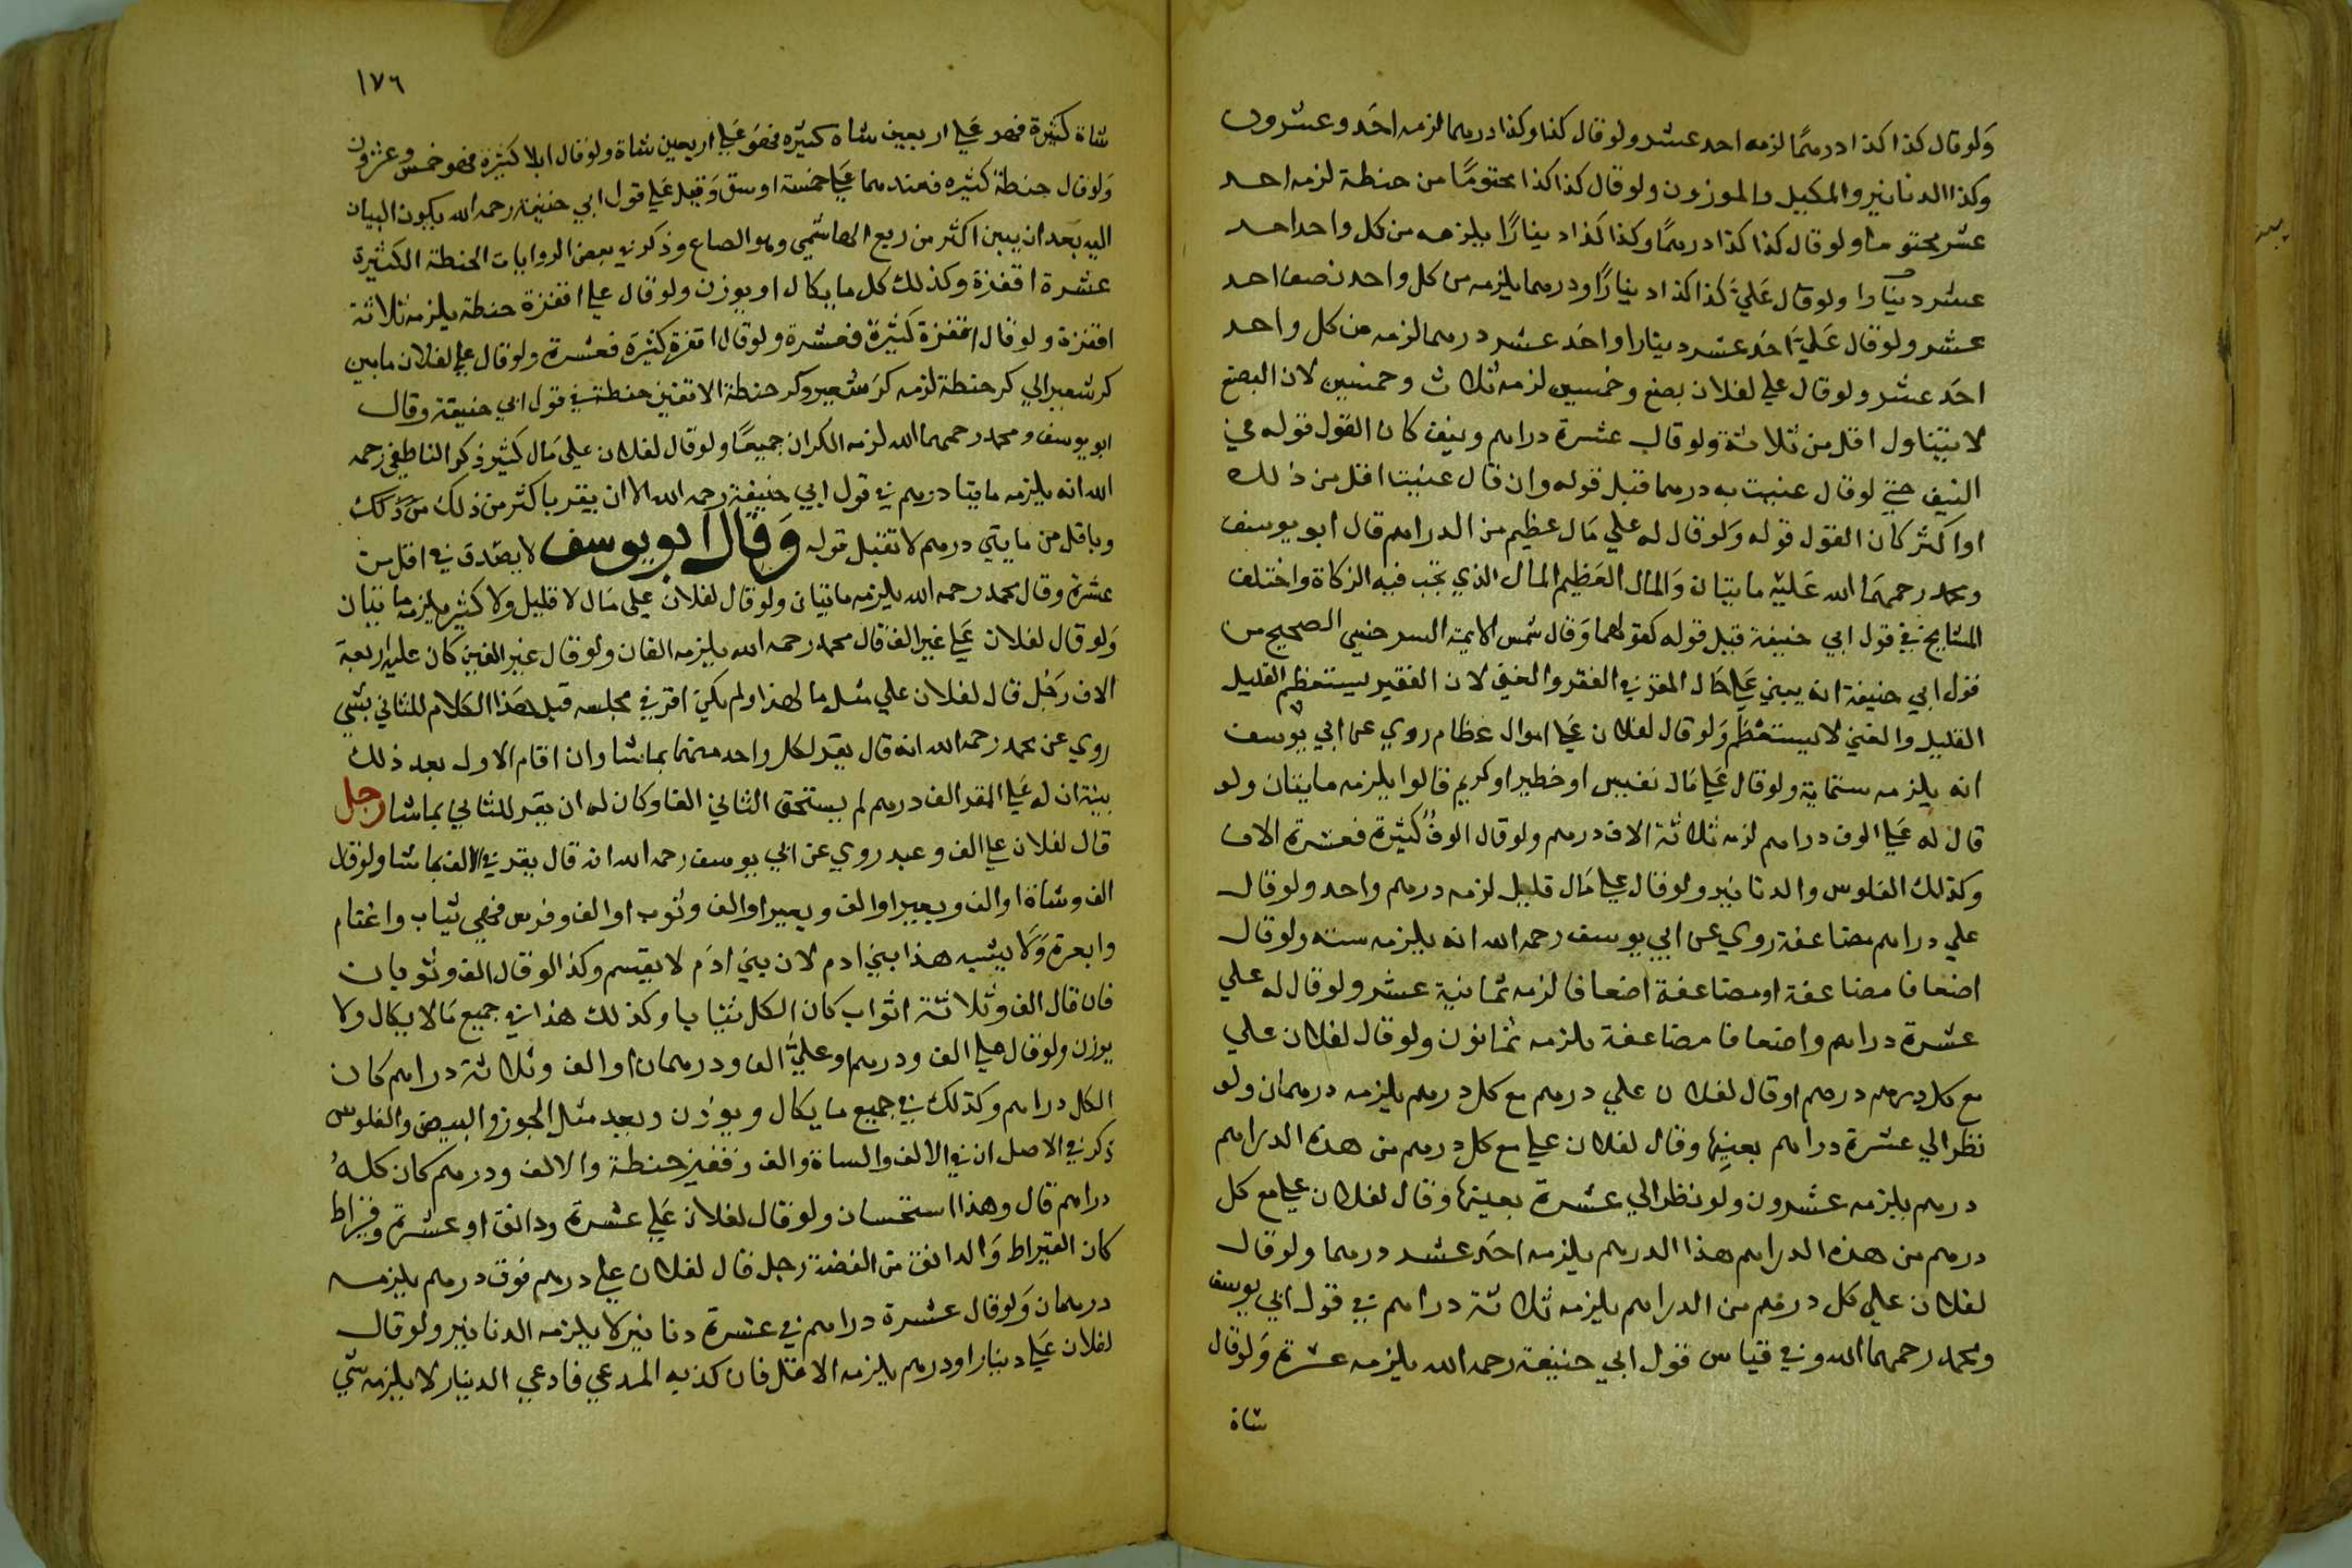 ولو قال كذا كذا درهمًا لزمه احد عشر ولو قال كذا وكذا درهما لزمه احد وعشرون
وكذا الدنانير والمكيل والموزون ولو قال كذا كذا مختومًا من حنطة لزمه احد
عشر مختوما ولو قال كذا كذا درهمًا وكذا كذا دينارًا يلزمه من كل واحد احد
عشر دينارا ولو قال عَليَّ كذا كذا دينارًا ودرهما يلزمه من كل واحد نصف احد
عشر ولو قال عَليَّ احَد عشر دينارا واحَد عشر درهما لزمه من كل واحد
احَد عشر ولو قال علي لفلان بضع وخمسين لزمه ثلاث وخمسين لان البضع
لا يتناول اقل من ثلاثة ولو قال عشرة دراهم ونيف كان القول قوله في
النيف حتي لو قال عنيت به درهما قبل قوله وان قال عنيت اقل من ذلك
او اكثر كان القول قوله وَلو قال له علي مَال عظيم من الدراهم قال ابو يوسف
ومحمد رحمهمَا الله عَليه مايتان وَالمال العَظيم المال الذي تجب فيه الزكاة واختلف
المشايخ في قول ابي حنيفة قيل قوله كقولهما وَقال شمس الايمة السرخسي الصحيح من
قول ابي حنيفة انه يبني عَلي حَال المقر في الفقر والغني لان الفقير يستعظم القليل
القليل والغني لا يستعظم وَلو قال لفلان عَلي اموال عظام روي عن ابي يوسف
انه يلزمه ستماية ولو قال عَلي مَال نفيس او خطير او كريم قالوا يلزمه مايتان ولو
قال له عَلي الوف دراهم لزمه ثلاثة الاف درهم ولو قال الوفٌ كثيرة فعشرة الاف
وكذلك الفلوس والدنانير ولو قال علي مَال قليل لزمه درهم واحد ولو قال
علي دراهم مضاعفة روي عن ابي يوسف رحمه الله انه يلزمه ستة ولو قال
اضعافا مضاعفة او مضاعفة اضعافا لزمه ثمانية عشر ولو قال له علي
عشرة دراهم واضعافا مضاعفة يلزمه ثمانون ولو قال لفلان علي
مع كل درهم درهم او قال لفلان علي درهم مع كل درهم يلزمه درهمان ولو
نظر الي عشرة دراهم بعينها وقال لفلان علي مع كل درهم من هذه الدراهم
درهم يلزمه عشرون ولو نظر الي عشرة بعينها وقال لفلان علي مع كل
درهم من هذه الدراهم هذا الدرهم يلزمه احَد عشر درهما ولو قال
لفلان علي كل درهم من الدراهم يلزمه ثلاثة دراهم في قول ابي يوسف
ومحمد رحمهما الله وفي قياس قول ابي حنيفة رحمه الله يلزمه عشرة وَلو قال
شاة
١٧٦
شاة كثيرة فهو عَلي اربعين شاة كثيره فهوَ عَلي اربعين شاة ولو قال ابلا كثيرة فهو خمس وعشرون
وَلو قال حنطة كثيره فعندهما عَلي خمسة اوسق وَقيل عَلي قول ابي حنيفة رحمه الله يكون البيان
اليه بَعد ان يبين اكثر من ربع الهاشمي وهو الصاع وذكر في بعض الروايات الحنطة الكثيرة
عشرة اقفزة وكذلك كل ما يكال او يوزن ولو قال علي اقفزة حنطة يلزمه ثلاثة
اقفزة ولو قال اقفزة كثيرة فعشرة ولو قال اقفزة كثيرَة فعشرة ولو قال علي لفلان ما بين
كر شعير الي كر حنطة لزمه كر شعير وكر حنطة الا قفيز حنطة في قول ابي حنيفة وقال
ابو يوسف ومحمد رحمهما الله لزمه الكران جميعًا ولو قال لفلان علي مَال كثير ذكر الناطفي رحمه
الله انه يلزمه مايتا درهم في قول ابي حنيفة رحمه الله الا ان يقر باكثر من ذلك من ذلك
وباقل من مايتي درهم لا تقبل قوله وَقال ابو يوسف لا يصَدق في اقل من
عشرة وقال محمد رحمه الله يلزمه مايتان ولو قال لفلان علي مَال لا قليل ولا كثير يلزمه مايتان
وَلو قال لفلان عَلي غير الف قال محمد رحمه الله يلزمه الفان ولو قال غير الفين كان عليه اربعة
الاف رَجُل قال لفلان علي مثل ما لهذا ولم يكن اقر في مجلسه قبل هَذا الكلام للثاني بشي
روي عن محمد رحمه الله انه قال يقر لكل واحد منهما بما شا وان اقام الاول بعد ذلك
بينة ان له عَلي المقر الف درهم لم يستحق الثاني الفا وكان له ان يقر للثاني بما شا رجل
قال لفلان علي الف وعبد روي عن ابي يوسف رحمه الله انه قال يقر في الالف بما شا ولو قال
الف وشاة او الف وبعير او الف وبعير او الف وثوب او الف وفرس فهي ثياب واغنام
وابعرة وَلَا يشبه هذا بني ادم لان بني ادَم لا يقسم وكذا لو قال الف وثوبان
فان قال الف وثلاثة اثواب كان الكل ثيابا وكذلك هذا في جميع مَا لا يكال ولا
يوزن ولو قال علي الف ودرهم او عليَّ الف ودرهمان او الف وثلاثة دراهم كان
الكل دراهم وكذلك في جميع ما يكال ويوزن ويعد مثل الجوز والبيض والفلوس
ذكر في الاصل ان في الالف والساة والف وقفيز حنطة والالف ودرهم كان كلهُ
دراهم قال وهذا استحسان ولو قال لفلان عَلي عشرة ودانق او عشرة وقيراط
كان القيراط وَالدانق من الفضة رجل قال لفلان علي درهم فوق درهم يلزمه
درهمان وَلو قال عشرة دراهم في عشرة دنانير لا يلزمه الدنانير ولو قال
لفلان عَلي دينار او درهم يلزمه الاقل فان كذبه المدعي فادعي الدينار لا يلزمه شي